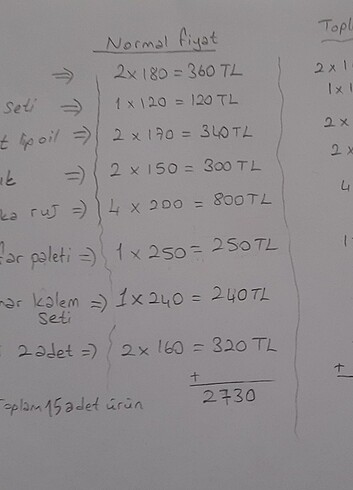 Normal fiyat
Topl
=> 2 x 180 = 360 TL
2 x 1
seti => 1 x 120 = 120 TL
1 x 1
t lip oil => 2 x 170 = 340 TL
2 x
=) 2 x 150 = 300 TL
2 x
kə ruj =) 4 x 200 = 800 TL
4
far pəleti =) 1 x 250 = 250 TL
1
kəlem => 1 x 240 = 240 TL
seti
2 ədet =) 2 x 160 = 320 TL
+
+
Toplam 15 ədet ürün
2730